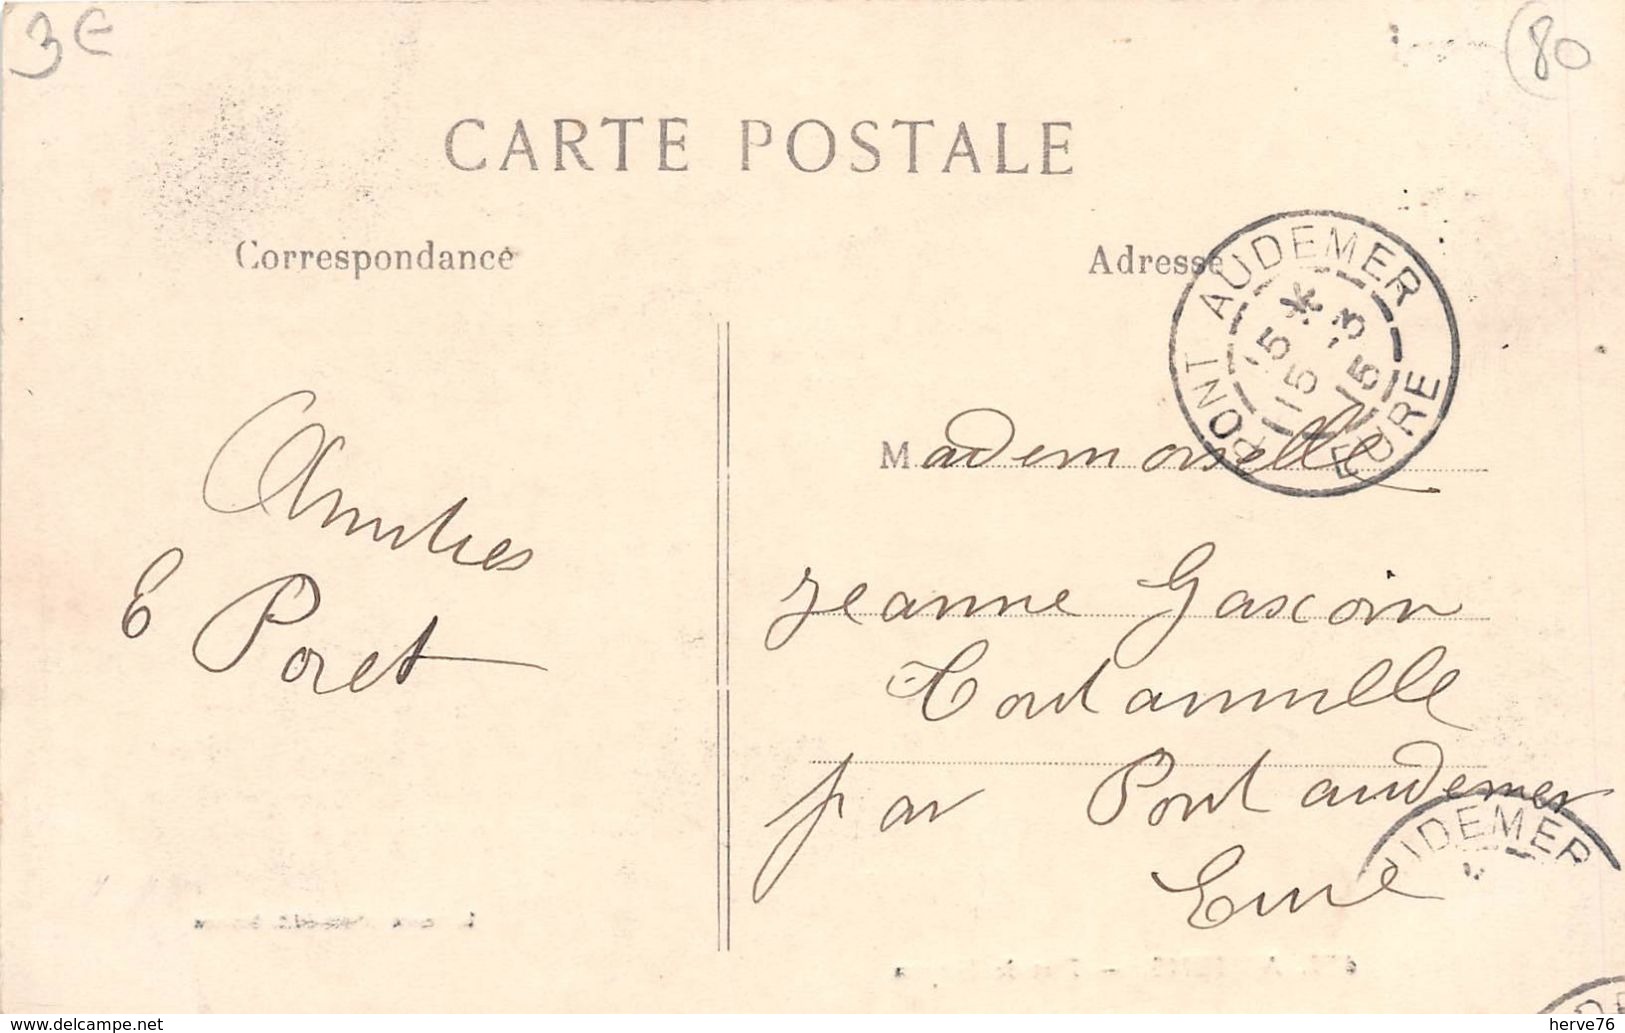 3 €
(80
CARTE POSTALE
Correspondance
Adresse
PONT AUDEMER
15 *
15 -3
15
EURE
Amities
E Poret
Mademoiselle
Jeanne Gascoin
Toutainville
par Pont audemer
Eure
UDEMER
www.delcampe.net
herve76